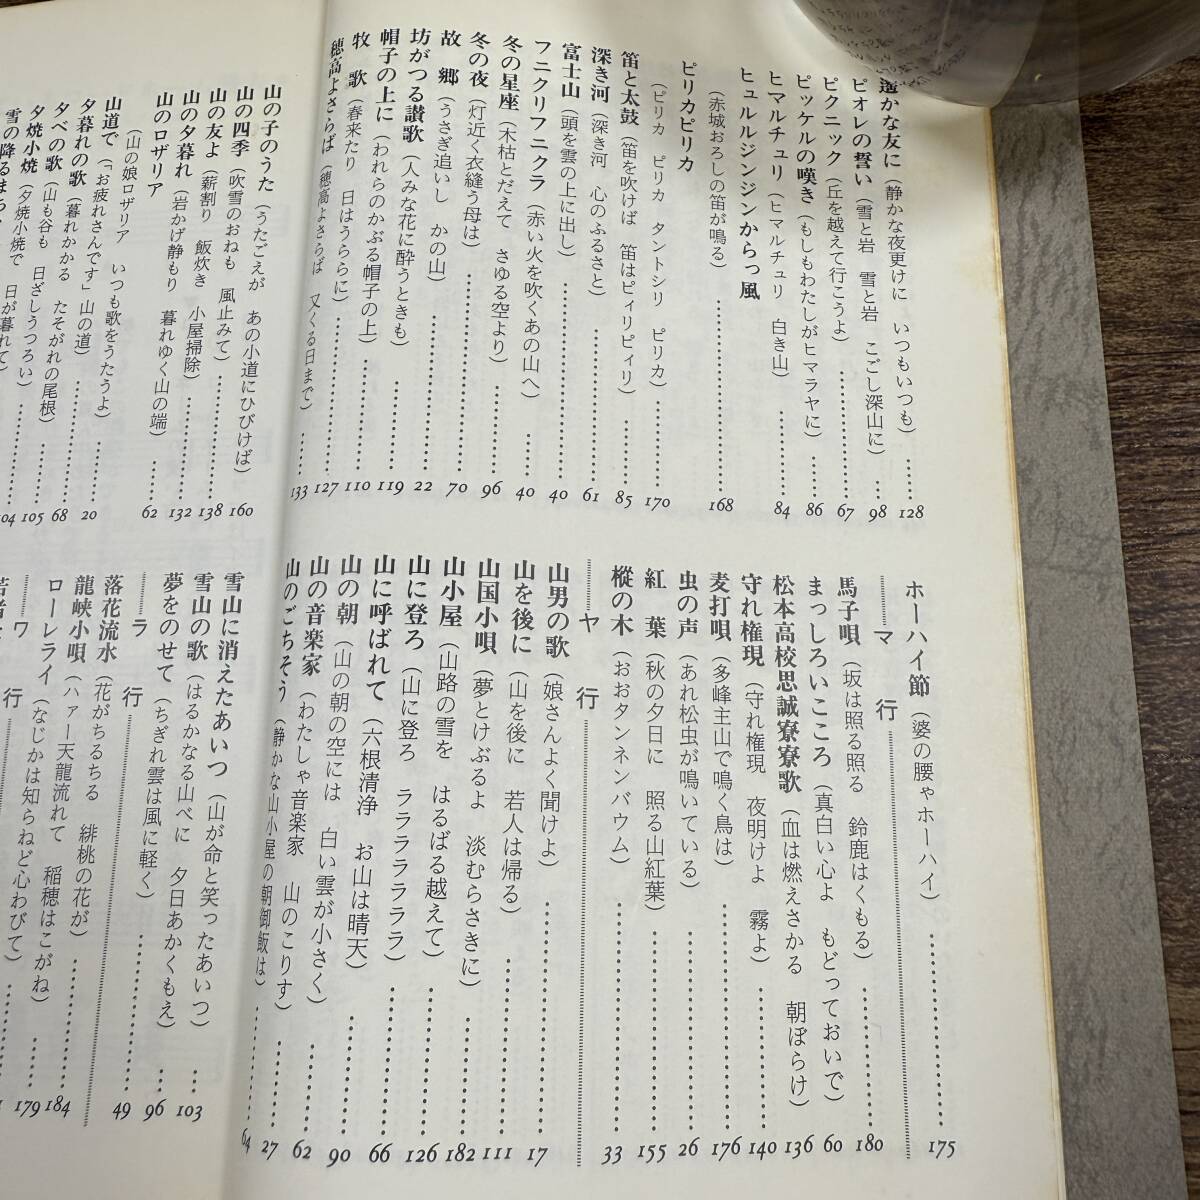 遥かな友に（静かな夜更けに　いつもいつも）……128
ピオレの誓い（雪と岩　雪と岩　こごし深山に）…98
ピクニック（丘を越えて行こうよ）……67
ピッケルの嘆き（もしもわたしがヒマラヤに）……86
ヒマルチュリ（ヒマルチュリ　白き山）……84
ヒュルルジンジンからっ風
（赤城おろしの笛が鳴る）……168
ピリカピリカ
（ピリカ　ピリカ　タントシリ　ピリカ）……170
笛と太鼓（笛を吹けば　笛はピィリピィリ）……85
深き河（深き河　心のふるさと）……61
富士山（頭を雲の上に出し）……40
フニクリフニクラ（赤い火を吹くあの山へ）……40
冬の星座（木枯とだえて　さゆる空より）……96
冬の夜（灯近く衣縫う母は）……70
故郷（うさぎ追いし　かの山）……22
坊がつる讃歌（人みな花に酔うときも）……119
帽子の上に（われらのかぶる帽子の上）……110
牧歌（春来たり　日はうららに）……127
穂高よさらば（穂高よさらば　又くる日まで）……133
ホーハイ節（婆の腰ゃホーハイ）……175
マ行
馬子唄（坂は照る照る　鈴鹿はくもる）……180
まっしろいこころ（真白い心よ　もどっておいで）60
松本高校思誠寮寮歌（血は燃えさかる　朝ぼらけ）136
守れ権現（守れ権現　夜明けよ　霧よ）……140
麦打唄（多峰主山で鳴く鳥は）……176
虫の声（あれ松虫が鳴いている）……26
紅葉（秋の夕日に　照る山紅葉）……155
樅の木（おおタンネンバウム）……33
ヤ行
山男の歌（娘さんよく聞けよ）……17
山を後に（山を後に　若人は帰る）……111
山国小唄（夢とけぶるよ　淡むらさきに）……182
山小屋（山路の雪を　はるばる越えて）……126
山に登ろ（山に登ろ　ララララララ）……66
山に呼ばれて（六根清浄　お山は晴天）
山の朝（山の朝の空には　白い雲が小さく）……90
山の音楽家（わたしゃ音楽家　山のこりす）……62
山のごちそう（静かな山小屋の朝御飯は）……27
山の子のうた（うたごえが　あの小道にひびけば）160
山の四季（吹雪のおねも　風止みて）……138
山の友よ（薪割り　飯炊き　小屋掃除）……132
山の夕暮れ（岩かげ静もり　暮れゆく山の端）……62
山のロザリア
（山の娘ロザリア　いつも歌をうたうよ）
山道で（「お疲れさんです」山の道）……20
夕暮れの歌（暮れかかる　たそがれの尾根）……68
夕べの歌（山も谷も　日ざしうつろい）……105
夕焼小焼（夕焼小焼で　日が暮れて）……104
雪の降るまち
64
雪山に消えたあいつ（山が命と笑ったあいつ）……103
雪山の歌（はるかなる山べに　夕日あかくもえ）…96
夢をのせて（ちぎれ雲は風に軽く）……49
ラ行
落花流水（花がちるちる　緋桃の花が）……184
龍峡小唄（ハァー天龍流れて　稲穂はこがね）……179
ローレライ（なじかは知らねど心わびて）……
ワ行
若者